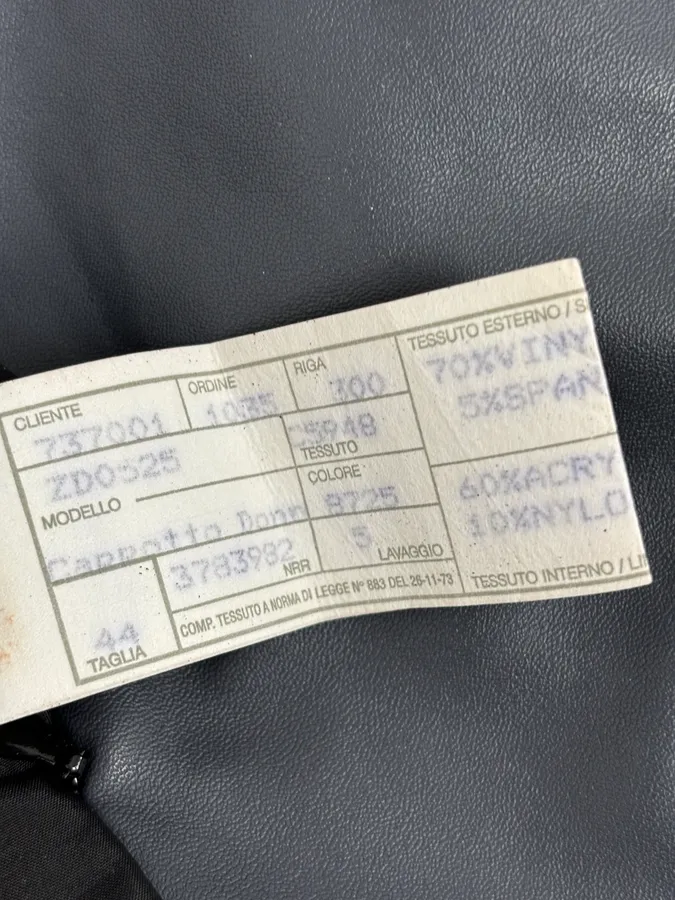 CLIENTE
737001
ORDINE
1035
RIGA
300
TESSUTO ESTERNO / S
70%VINY
5%SPAN
ZD0525
MODELLO
Cappotto Donn
TESSUTO
COLORE
8725
60%ACRY
10%NYLO
TESSUTO INTERNO / LI
3783982
NRR
5
LAVAGGIO
COMP. TESSUTO A NORMA DI LEGGE N° 883 DEL 26-11-73
44
TAGLIA